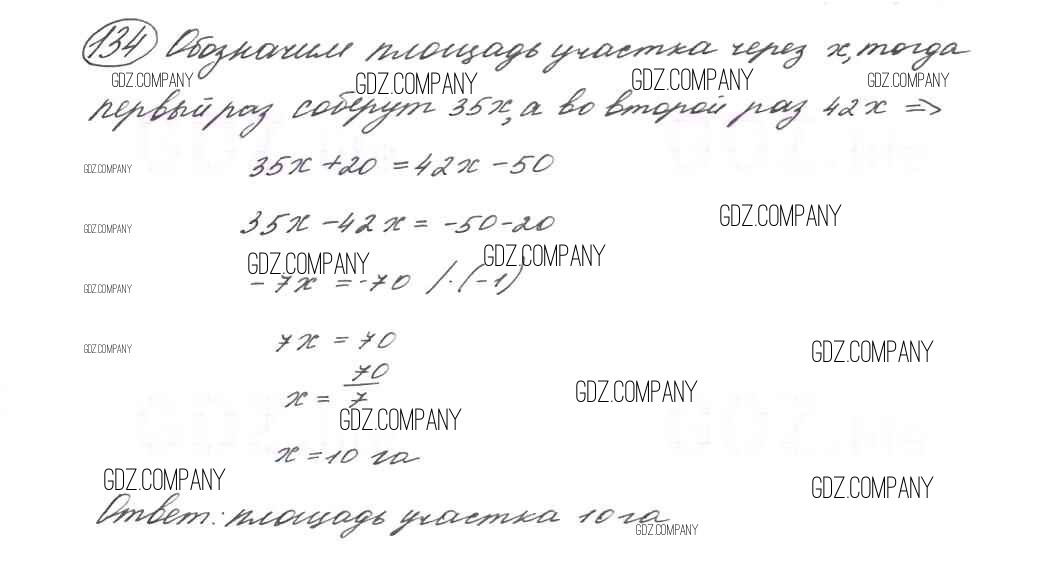 134 Обозначим площадь участка через x, тогда
GDZ.COMPANY GDZ.COMPANY GDZ.COMPANY GDZ.COMPANY
первый раз соберут 35x, а во второй раз 42x =>
GDZ.Me GDZ.Me
GDZ.COMPANY 35x + 20 = 42x - 50
GDZ.COMPANY
GDZ.COMPANY 35x - 42x = -50 - 20
GDZ.COMPANY GDZ.COMPANY
GDZ.COMPANY -7x = -70 / · (-1)
GDZ.COMPANY 7x = 70
GDZ.COMPANY
x = 70/7
GDZ.COMPANY
GDZ.COMPANY
GDZ.Me GDZ.Me
x = 10 га
GDZ.COMPANY GDZ.COMPANY
Ответ: площадь участка 10 га
GDZ.COMPANY